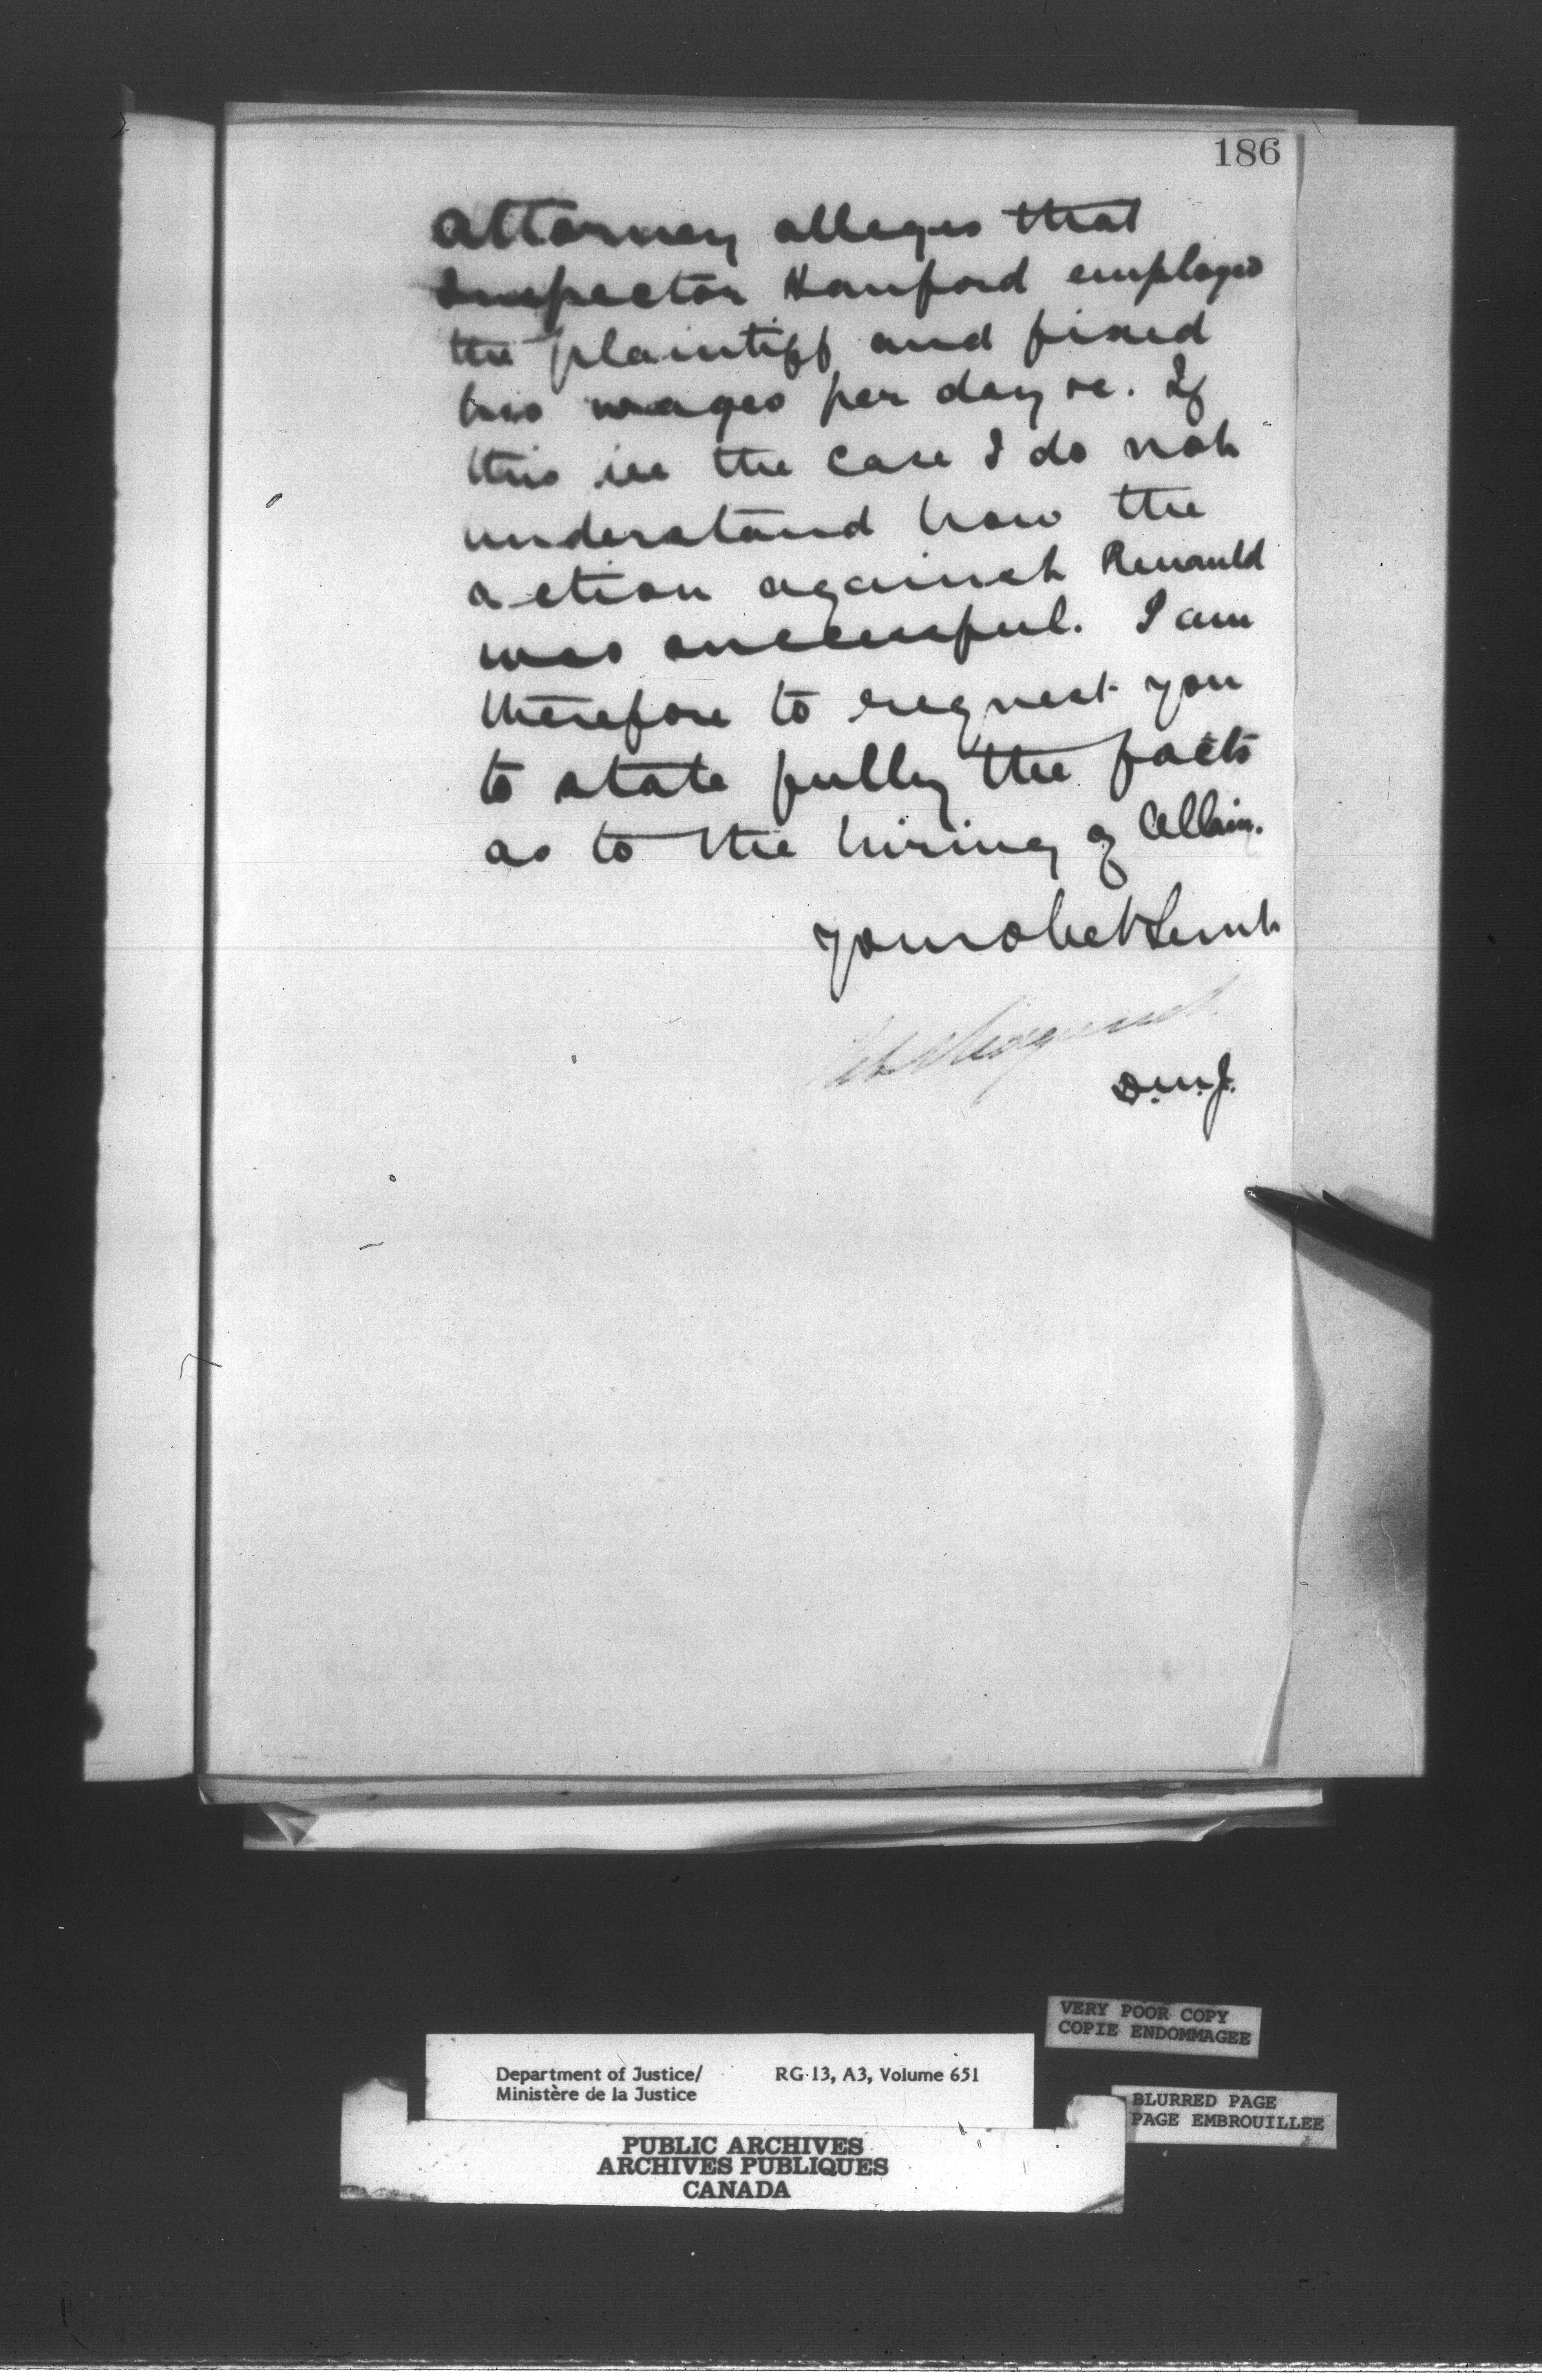 186
attorney alleges that
Inspector Hanford employed
the plaintiff and fixed
his wages per day &c. If
this is the case I do not
understand how the
action against Renauld
was successful. I am
therefore to request you
to state fully the facts
as to the hiring of Allain.
Your obet Servt
D.M.J.
VERY POOR COPY
COPIE ENDOMMAGEE
Department of Justice/ RG 13, A3, Volume 651
Ministère de la Justice
BLURRED PAGE
PAGE EMBROUILLEE
PUBLIC ARCHIVES
ARCHIVES PUBLIQUES
CANADA